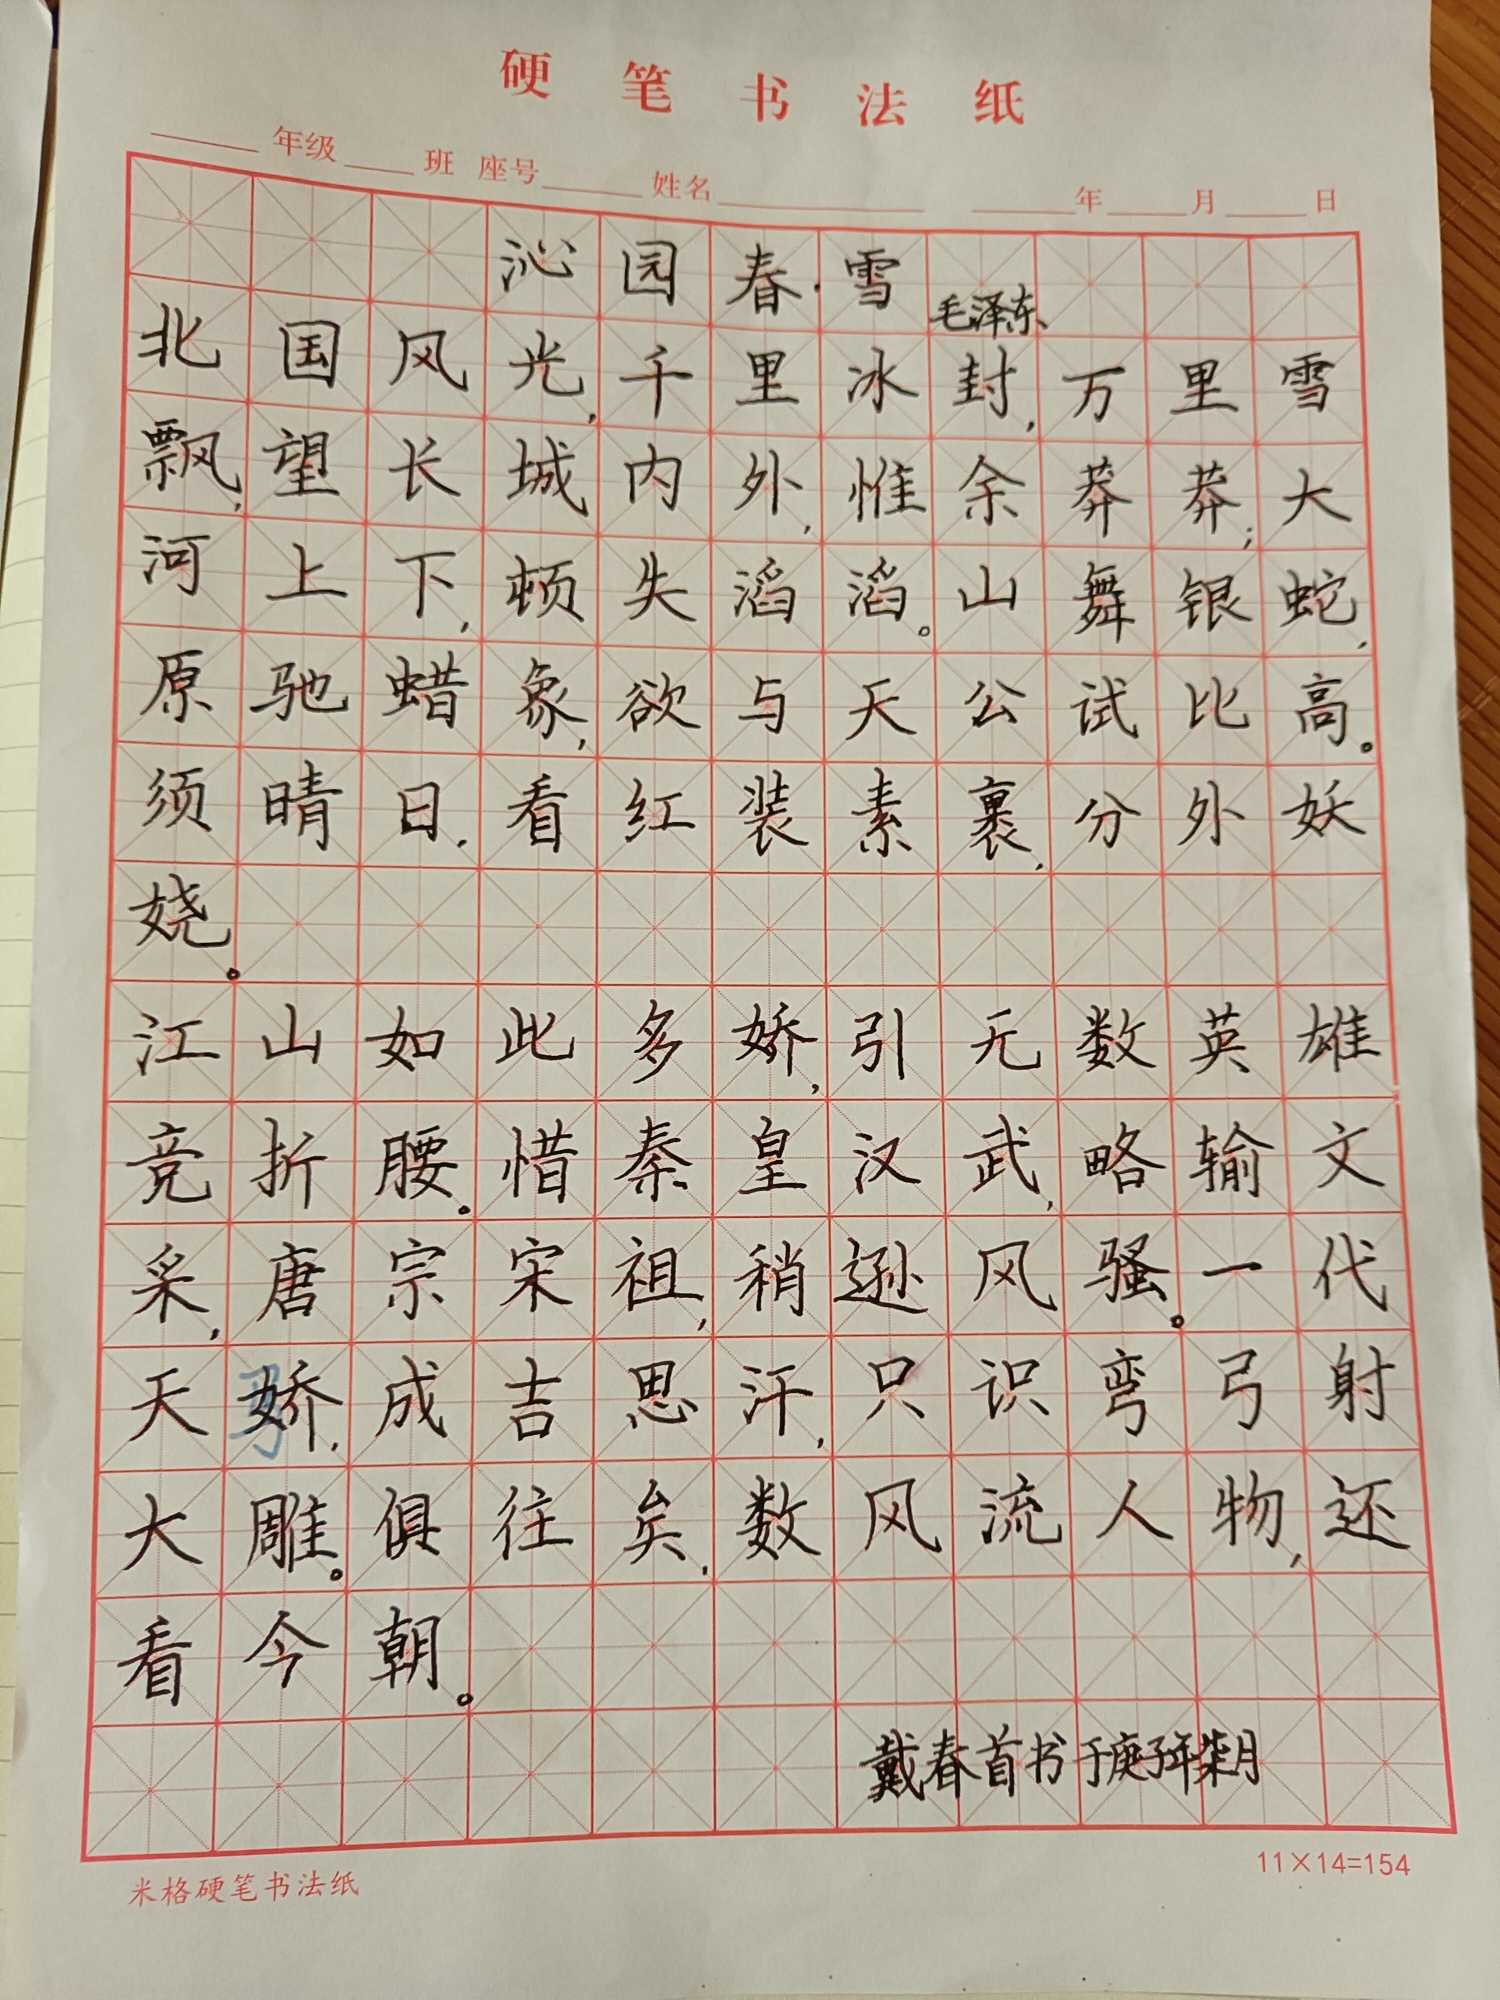 硬笔书法纸
年级 班 座号 姓名 年 月 日
沁园春·雪
毛泽东
北国风光,千里冰封,万里雪
飘,望长城内外,惟余莽莽;大
河上下,顿失滔滔。山舞银蛇,
原驰蜡象,欲与天公试比高。
须晴日,看红装素裹,分外妖
娆。
江山如此多娇,引无数英雄
竞折腰。惜秦皇汉武,略输文
采,唐宗宋祖,稍逊风骚。一代
天娇,成吉思汗,只识弯弓射
大雕。俱往矣,数风流人物,还
看今朝。
戴春首书于庚子年柒月
米格硬笔书法纸
11×14=154